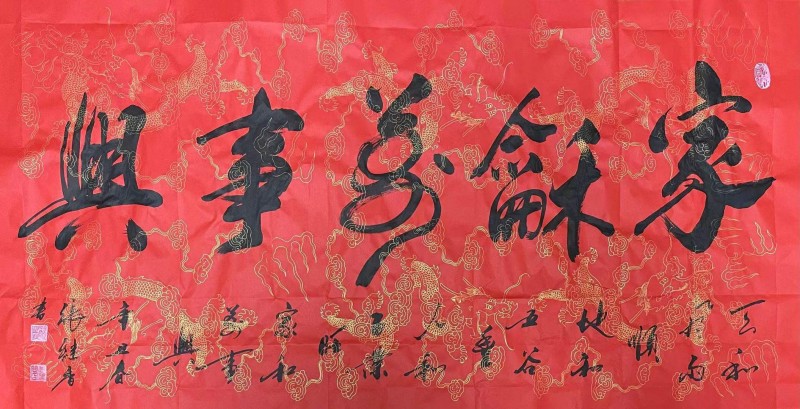 家龢萬事興
天和
風雨
順
地和
五谷
豐
人和
百業
旺
家和
萬事
興
辛丑春
張継
書